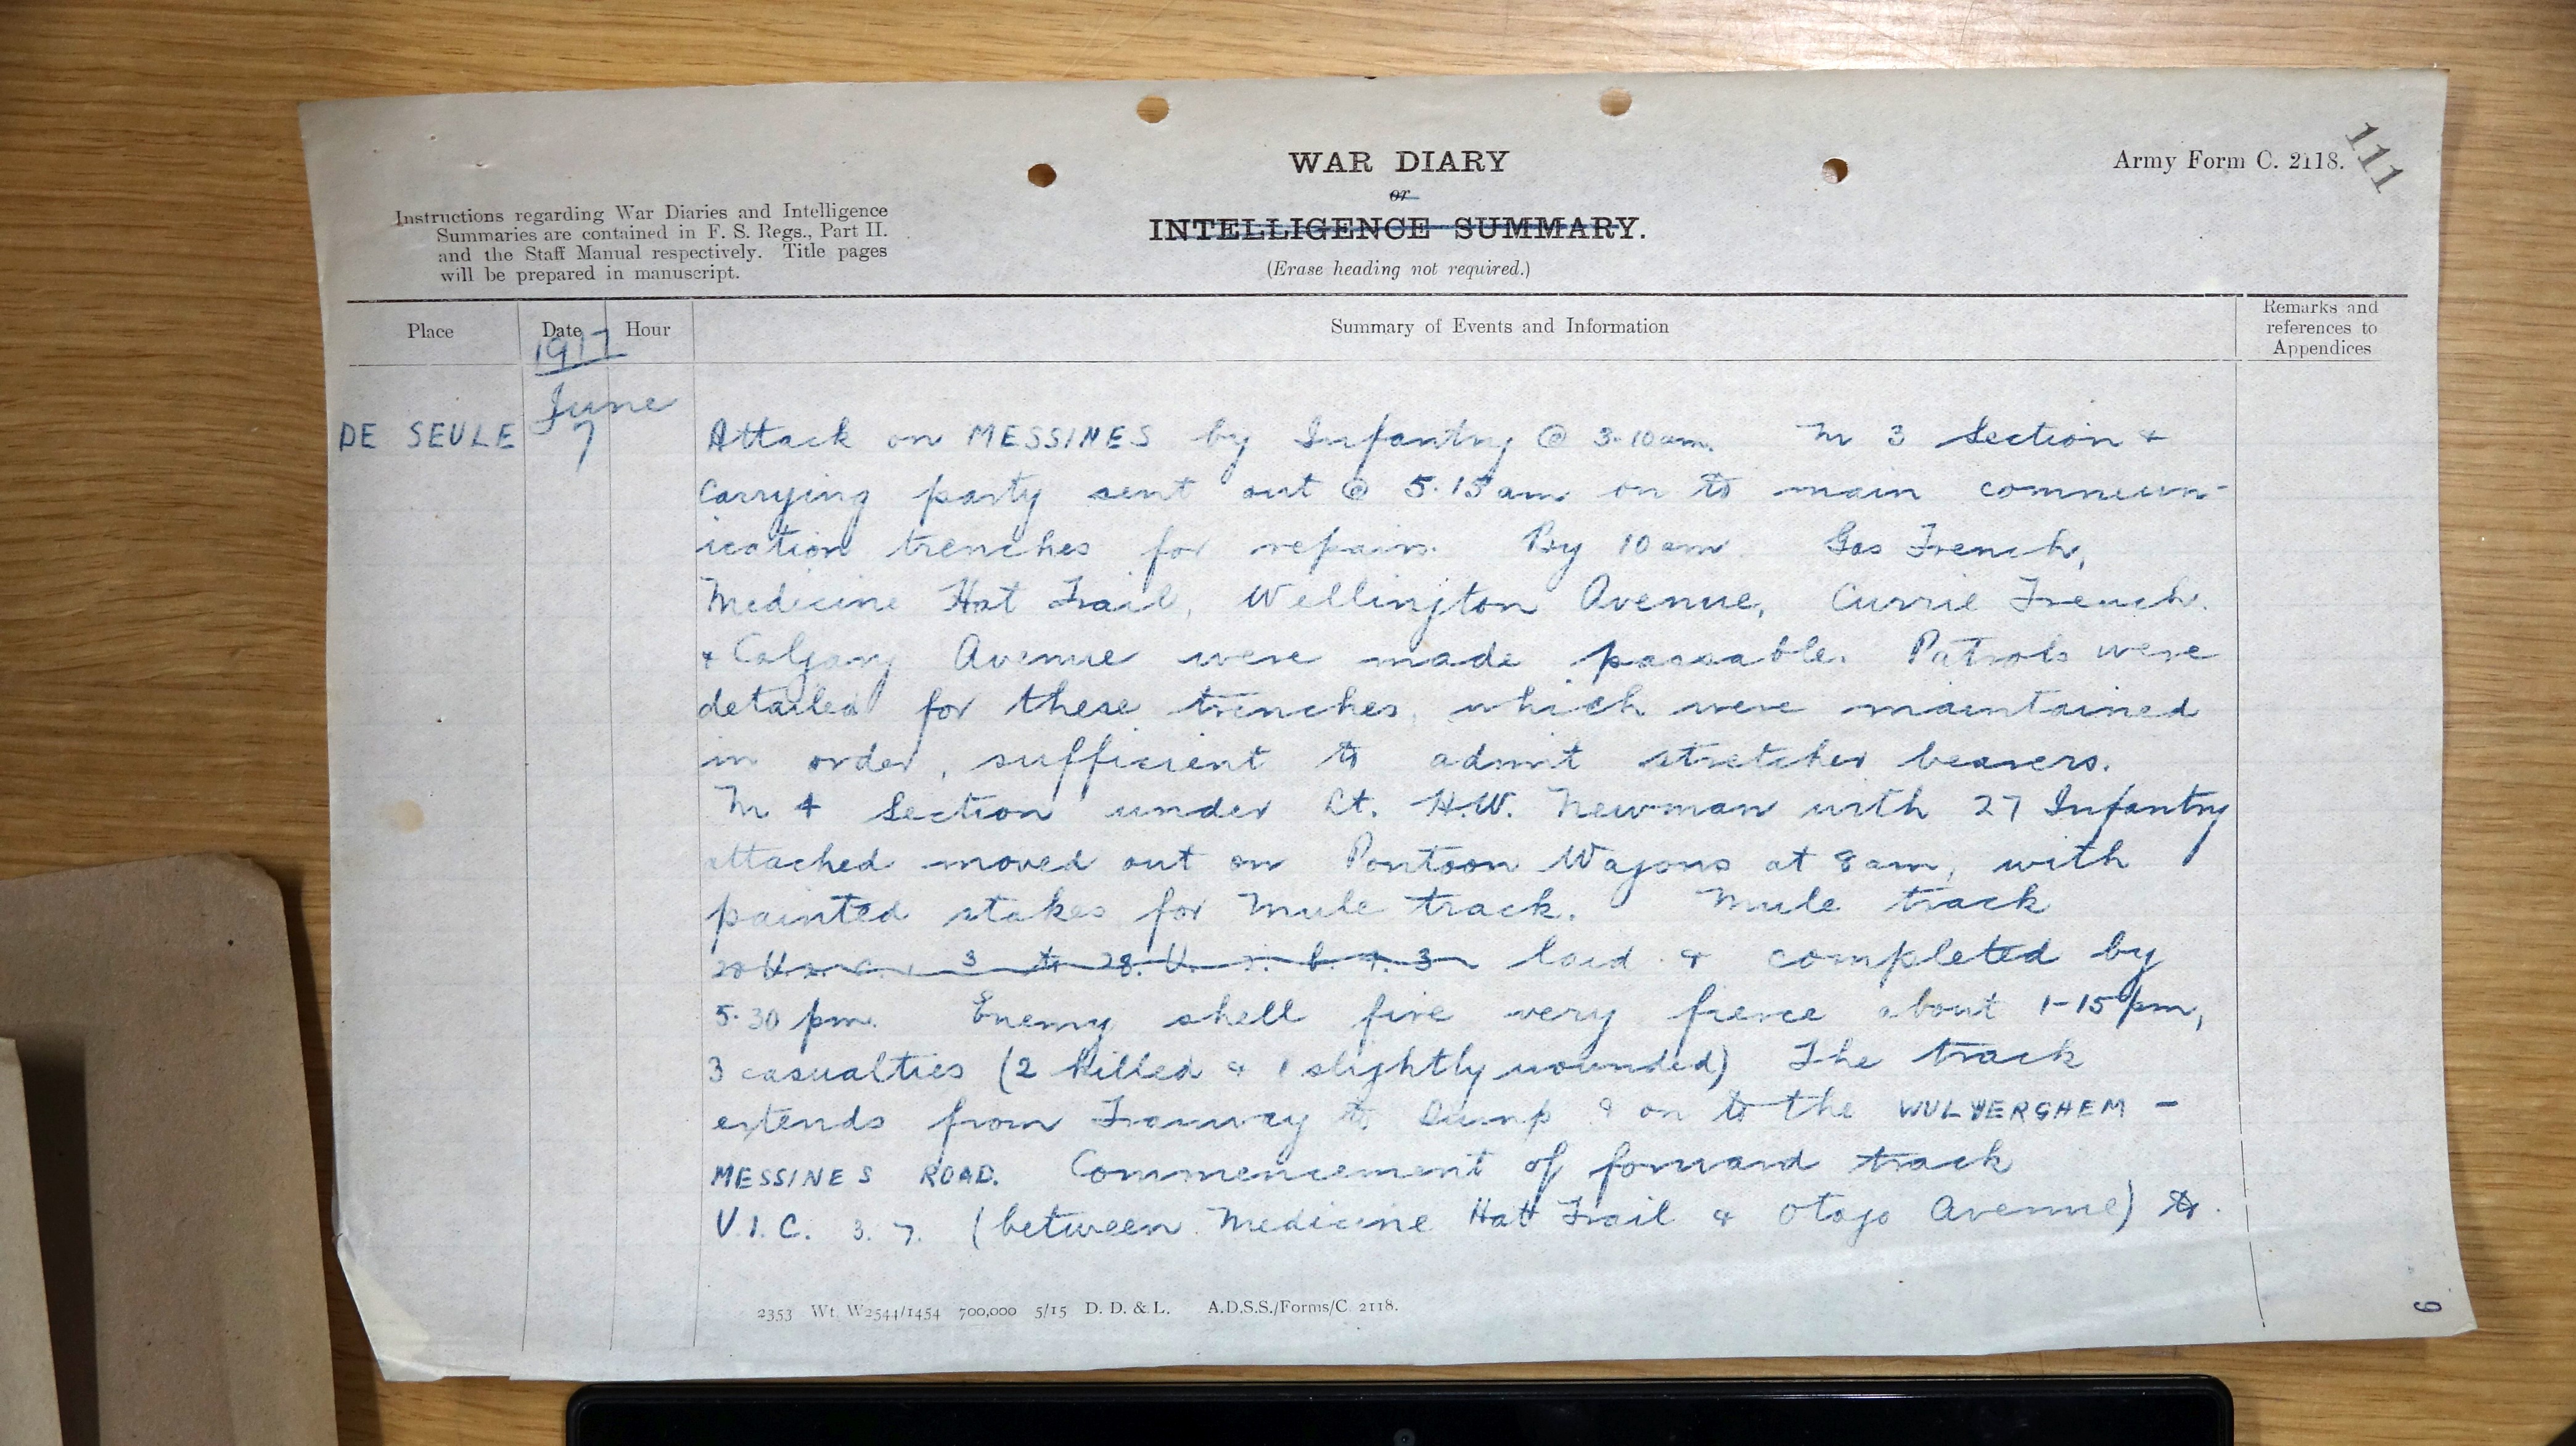 WAR DIARY
or
INTELLIGENCE SUMMARY.
(Erase heading not required.)
Army Form C. 2118.
111
Instructions regarding War Diaries and Intelligence
Summaries are contained in F. S. Regs., Part II.
and the Staff Manual respectively. Title pages
will be prepared in manuscript.
Place Date Hour Summary of Events and Information Remarks and references to Appendices
1917
June
DE SEULE 7 Attack on MESSINES by Infantry @ 3-10am. No 3 Section &
Carrying party sent out @ 5.15am on to main commun-
ication trenches for repairs. By 10am Gas Trench,
Medicine Hat Trail, Wellington Avenue, Currie Trench.
& Calgary Avenue were made passable. Patrols were
detailed for these trenches, which were maintained
in order, sufficient to admit stretcher bearers.
No 4 Section under Lt. H.W. Newman with 27 Infantry
attached moved out on Pontoon Wagons at 8am, with
painted stakes for Mule track. Mule track
3 to 28. U. b. 4. 3 laid & completed by
5.30 pm. Enemy shell fire very fierce about 1-15pm,
3 casualties (2 killed & 1 slightly wounded) The track
extends from Tramway to Dump & on to the WULVERGHEM -
MESSINES ROAD. Commencement of forward track
U.1.C. 3.7. (between Medicine Hatt Trail & Otago Avenue) to.
2353 Wt. W2544/1454 700,000 5/15 D. D. & L. A.D.S.S./Forms/C. 2118.
6